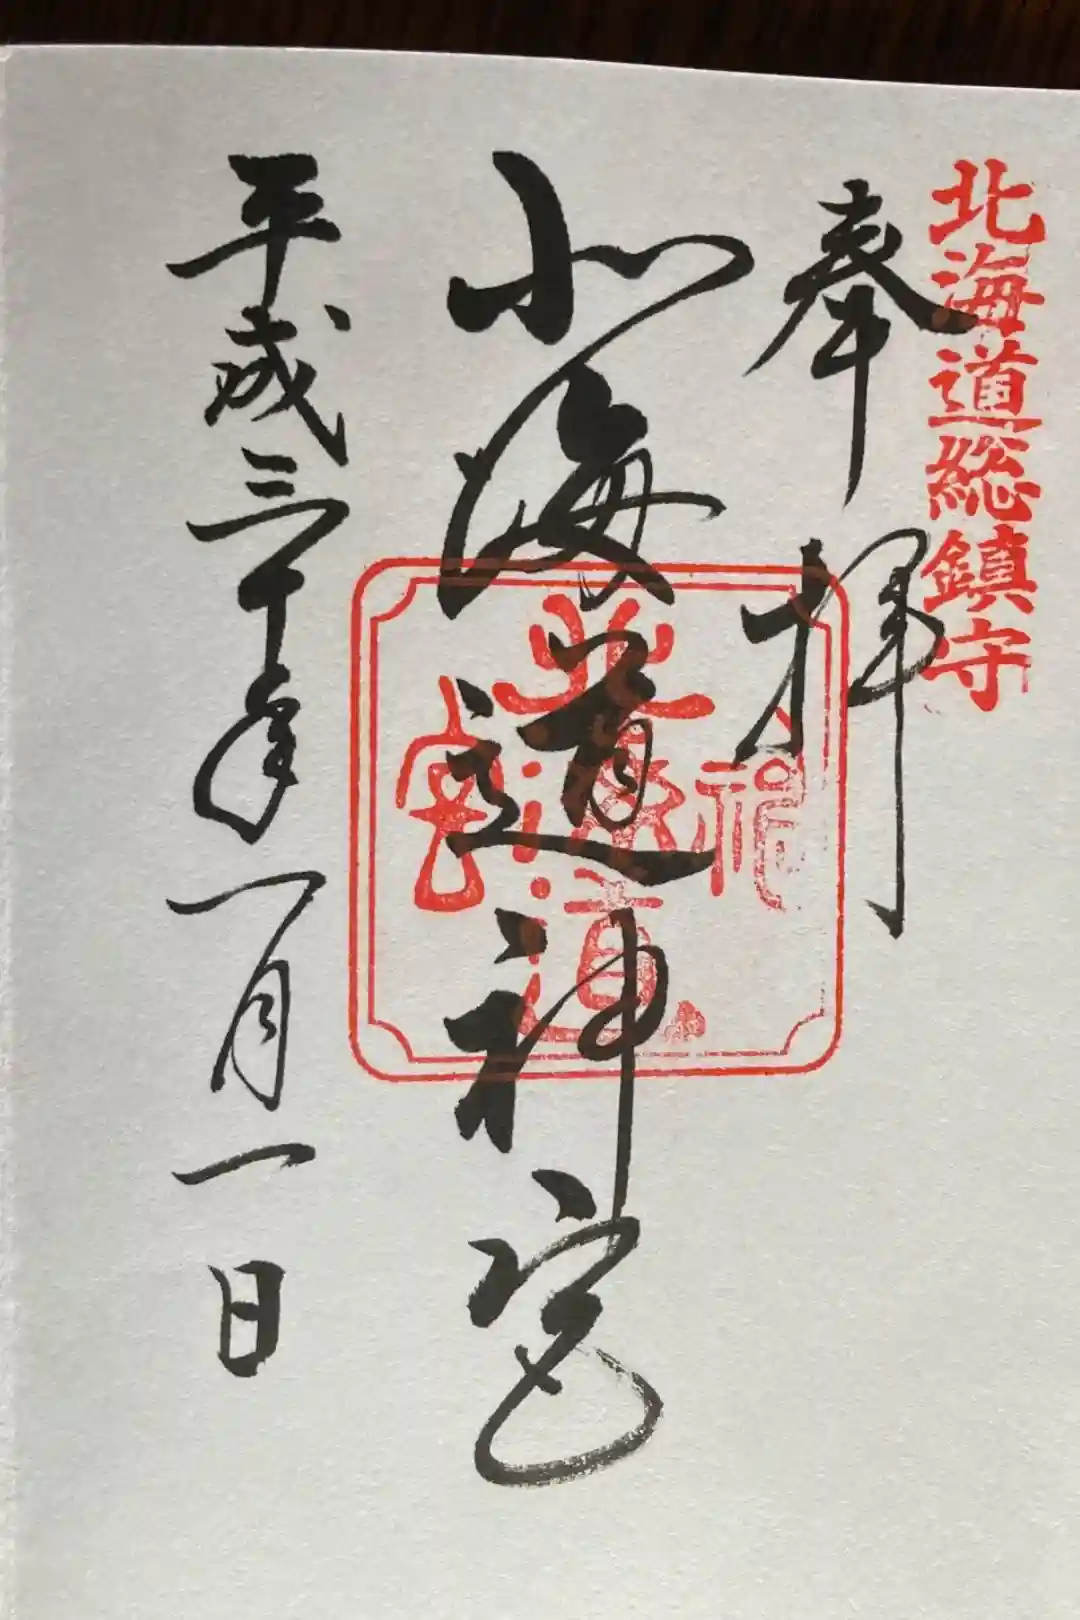 北海道総鎮守
奉拝
北海道神宮
北海道
神
宮
平成三十年一月一日